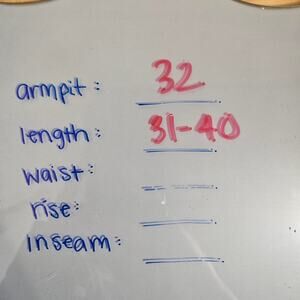 armpit: 32
length: 31-40
waist:
rise:
inseam: